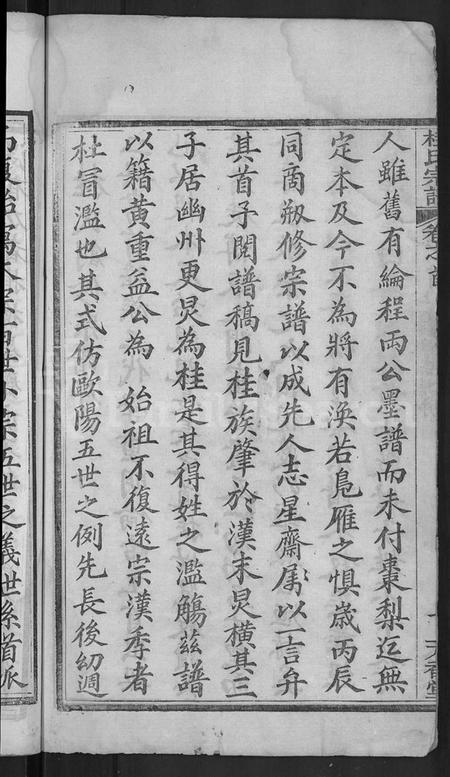 桂氏宗譜 卷之首
人雖舊有綸程兩公墨譜而未付棗梨迄無
定本及今不為將有渙若鳧雁之懼歲丙辰
同商刱修宗譜以成先人志星齋屬以一言弁
其首子閱譜稿見桂族肇於漢末炅橫其三
子居幽州更炅為桂是其得姓之濫觴茲譜
以籍黃重益公為 始祖不復遠宗漢季者
杜冒濫也其式仿歐陽五世之例先長後幼週
大宗百世小宗五世之義世系首派